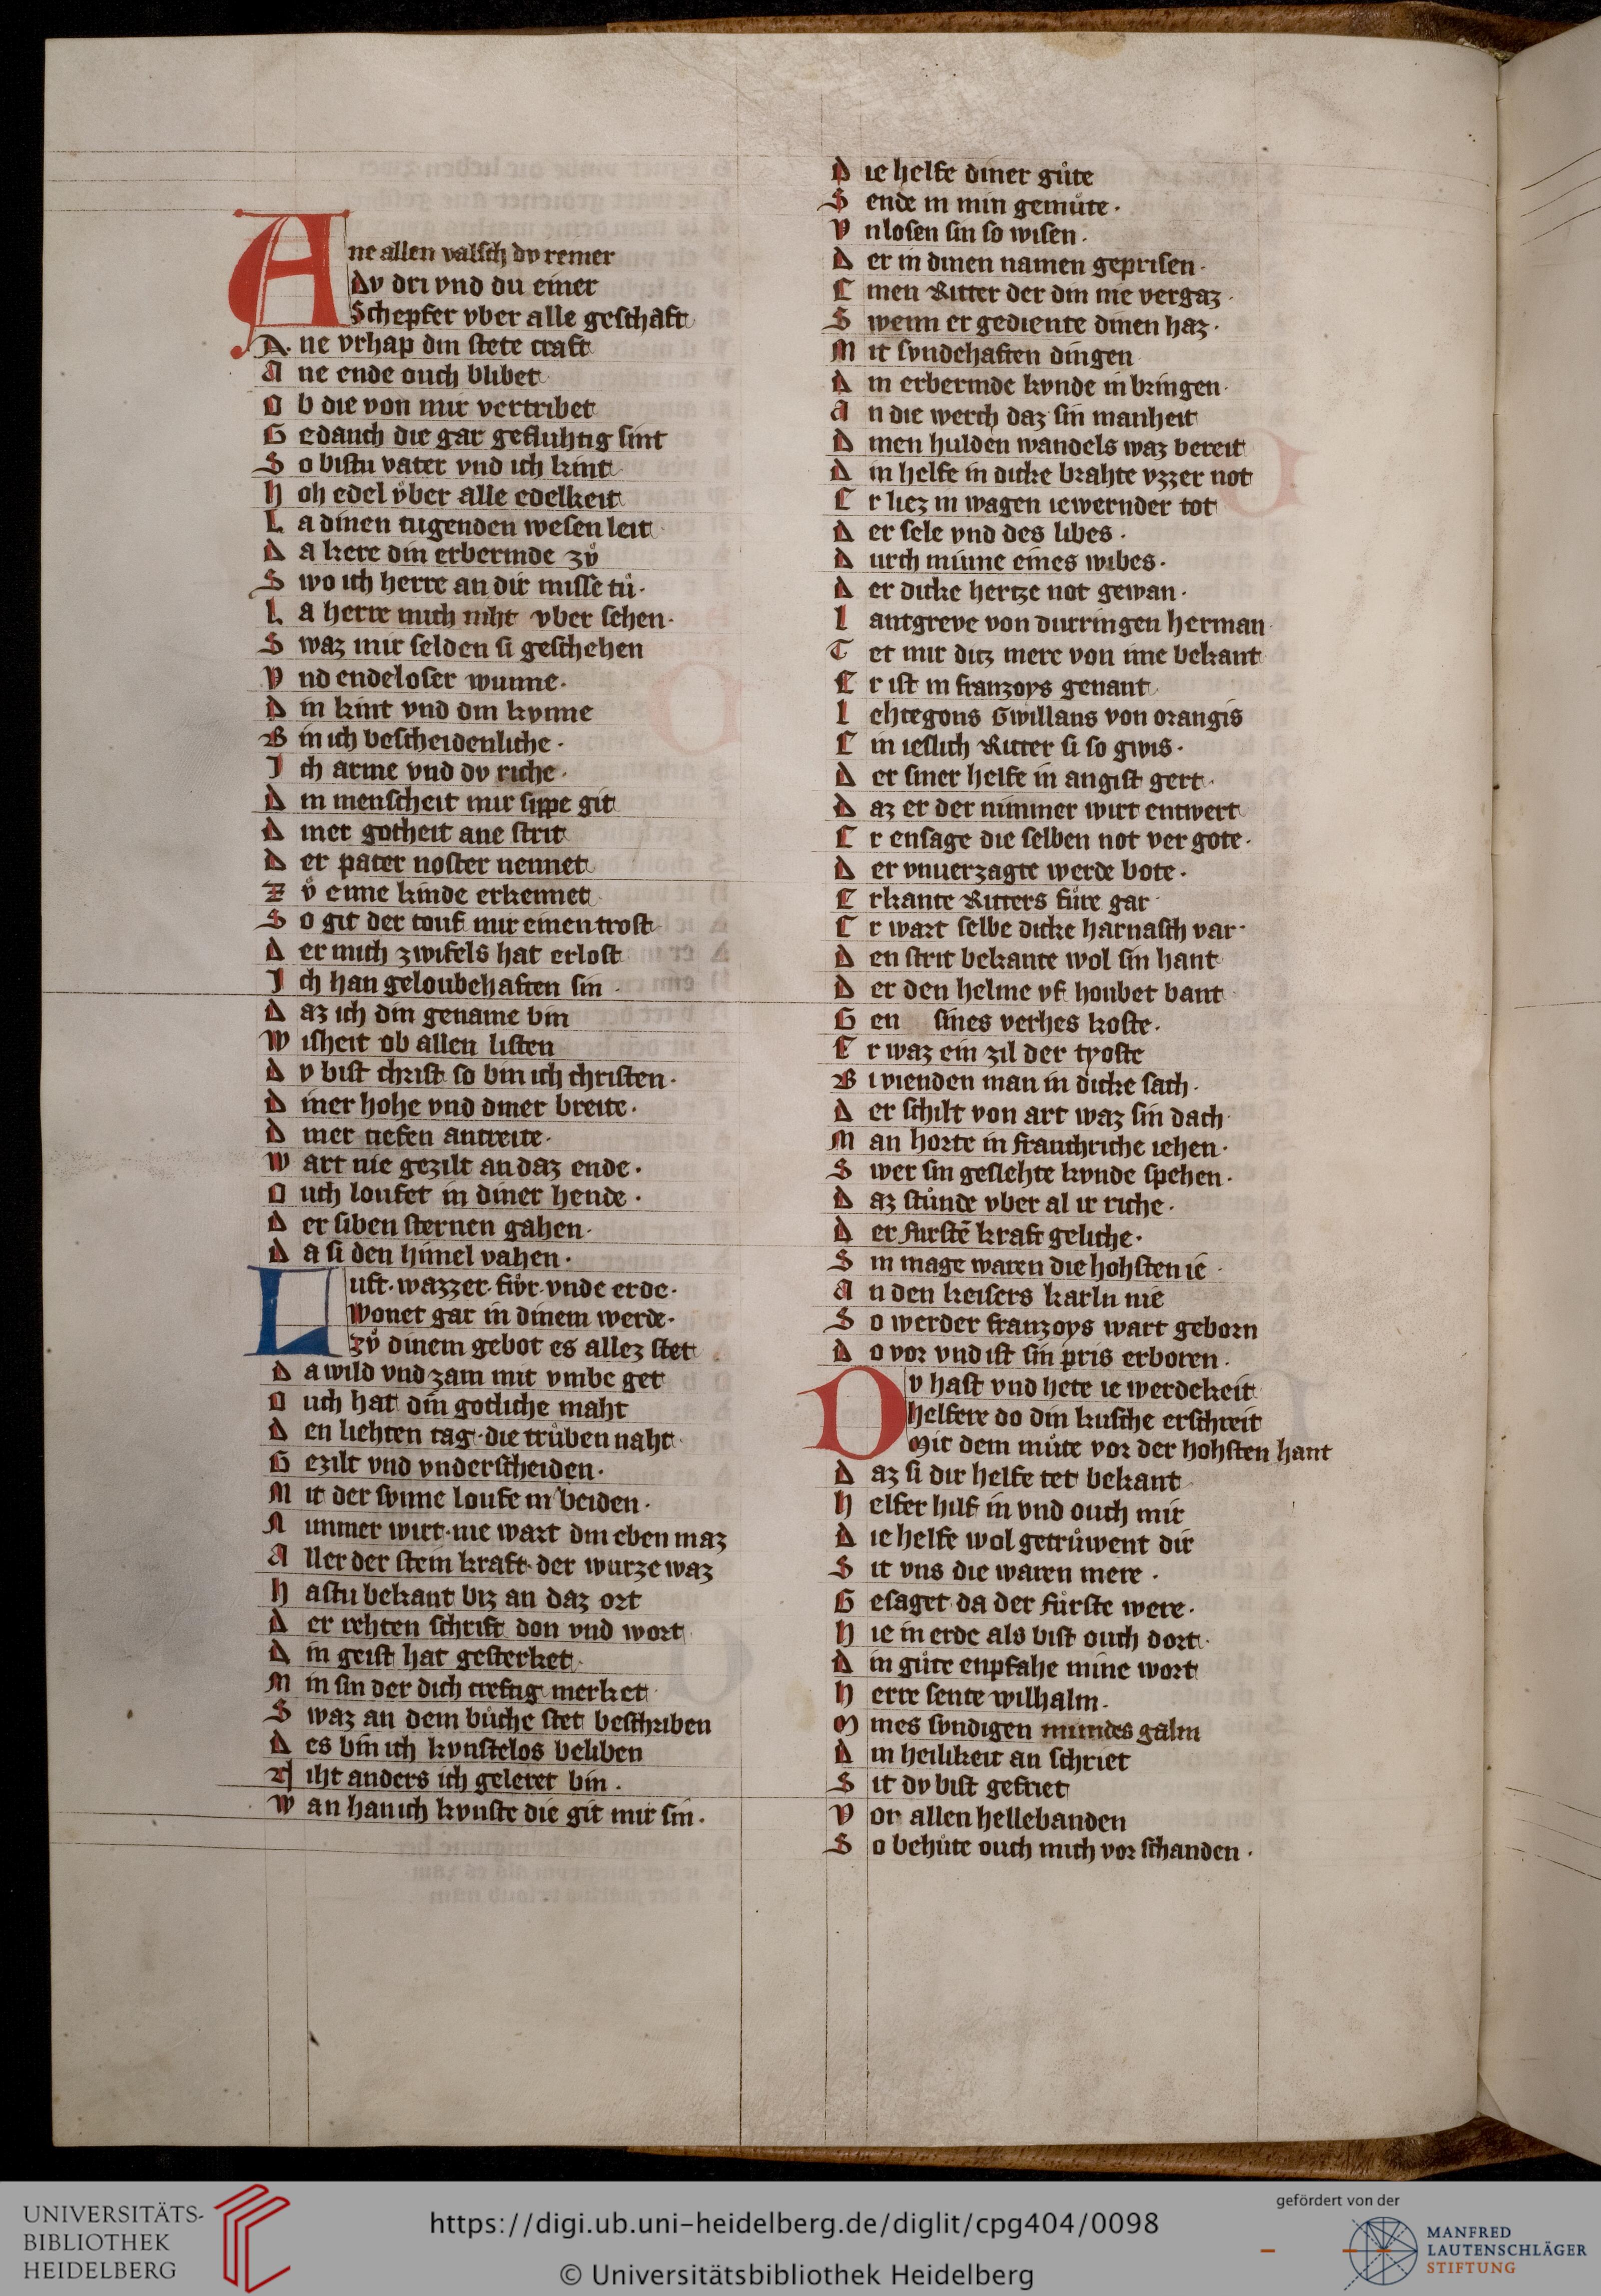 Ane allen valsch dv reiner
Dv dri vnd du einer
Schepfer vber alle geschaft
Ane vrhap din stete craft
Ane ende ouch blibet
Ob die von mir vertribet
Gedanch die gar gefluhtig sint
So bistu vater vnd ich kint
Hoh edel vͦber alle edelkeit
La dinen tugenden wesen leit
Da kere din erbermde zvͦ
Swo ich herre an dir misse tuͦ·
La herre mich niht vber sehen·
Swaz mir selden si geschehen
Vnd endeloser wunne·
Din kint vnd din kvnne
Bin ich bescheidenliche·
Ich arme vnd dv riche·
Din menscheit mir sippe git
Diner gotheit ane strit
Der pater noster nennet
Zvͦ eime kinde erkennet
So git der touf mir einen trost
Der mich zwifels hat erlost
Ich han geloubehaften sin
Daz ich din gename bin
Wisheit ob allen listen
Dv bist christ so bin ich christen·
Diner hohe vnd diner breite·
Diner tiefen antreite·
Wart nie gezilt an daz ende·
Ouch loufet in diner hende·
Der siben sternen gahen·
Da si den himel vahen·
Luft· wazzer· fivͦr· vnde erde·
Wonet gar in dinem werde·
Zvͦ dinem gebot es allez stet
Da wild vnd zam mit vmbe get
Ouch hat din gotliche maht
Den liehten tag· die truͦben naht
Gezilt vnd vnderscheiden·
Mit der svnne loufe in beiden·
Nimmer wirt· nie wart din eben maz
Aller der stein kraft· der wurze waz
Hastu bekant biz an daz ort
Der rehten schrift don vnd wort
Din geist hat gesterket
Min sin der dich creftig merket
Swaz an dem buͦche stet beschriben
Des bin ich kvnstelos beliben
Niht anders ich geleret bin·
Wan han ich kvnste die git mir sin·
Die helfe diner guͦte
Sende in min gemuͦte·
Vnlosen sin so wisen·
Der in dinen namen geprisen·
Einen Ritter der din nie vergaz·
Swenn er gediente dinen haz·
Mit svndehaften dingen
Din erbermde kvnde in bringen·
An die werch daz sin manheit
Dinen hulden wandels waz bereit
Din helfe in dicke brahte vzzer not
Er liez in wagen iewernder tot
Der sele vnd des libes·
Durch minne eines wibes·
Der dicke hertze not gewan·
Lantgreve von durringen herman
Tet mir ditz mere von ime bekant
Er ist in franzoys genant
Lehtegons Gwillans von orangis
Ein ieslich Ritter si so gwis·
Der siner helfe in angist gert·
Daz er der nimmer wirt entwert
Er ensage die selben not ver gote·
Der vnuerzagte werde bote·
Erkante Ritters fuͦre gar
Er wart selbe dicke harnasch var·
Den strit bekante wol sin hant
Der den helme vf houbet bant
Gen sines verhes koste·
Er waz ein zil der tyoste
Bi vienden man in dicke sach·
Der schilt von art waz sin dach
Man horte in franchriche iehen·
Swer sin geslehte kvnde spehen·
Daz stuͦnde vber al ir riche·
Der furstē kraft geliche·
Sin mage waren die hohsten ie
An den keisers karln nie
So werder franzoys wart geborn
Do vor vnd ist sin pris erboren·
Dv hast vnd hete ie werdekeit
Helfere do din kusche erschreit
Mit dem muͦte vor der hohsten hant
Daz si dir helfe tet bekant
Helfer hilf in vnd ouch mir
Die helfe wol getruͦwent dir
Sit vns die waren mere·
Gesaget da der fuͦrste were·
Hie in erde als bist ouch dort·
Din guͦte enpfahe mine wort
Herre sente wilhalm·
Mines svndigen mundes galm
Din heilikeit an schriet
Sit dv bist gefriet
Von allen hellebanden
So behuͦte ouch mich vor schanden·
UNIVERSITÄTS-
BIBLIOTHEK
HEIDELBERG
https://digi.ub.uni-heidelberg.de/diglit/cpg404/0098
© Universitätsbibliothek Heidelberg
gefördert von der
MANFRED
LAUTENSCHLÄGER
STIFTUNG